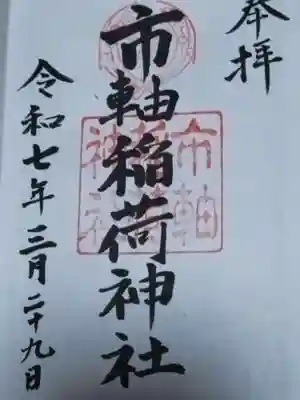 奉拝
市軸稲荷神社
令和七年三月二十九日
市軸
稲荷
神社